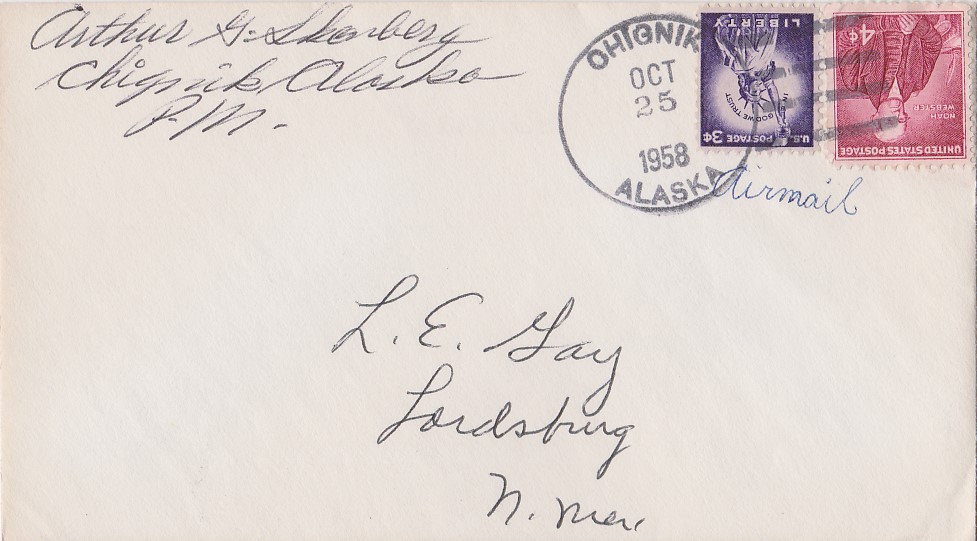 Arthur G. Skonberg
Chignik, Alaska
P.M.
CHIGNIK
OCT
25
1958
ALASKA
LIBERTY
IN GOD WE TRUST
U.S. POSTAGE 3¢
4¢
NOAH
WEBSTER
UNITED STATES POSTAGE
Airmail
L. E. Gay
Lordsburg
N. Mex